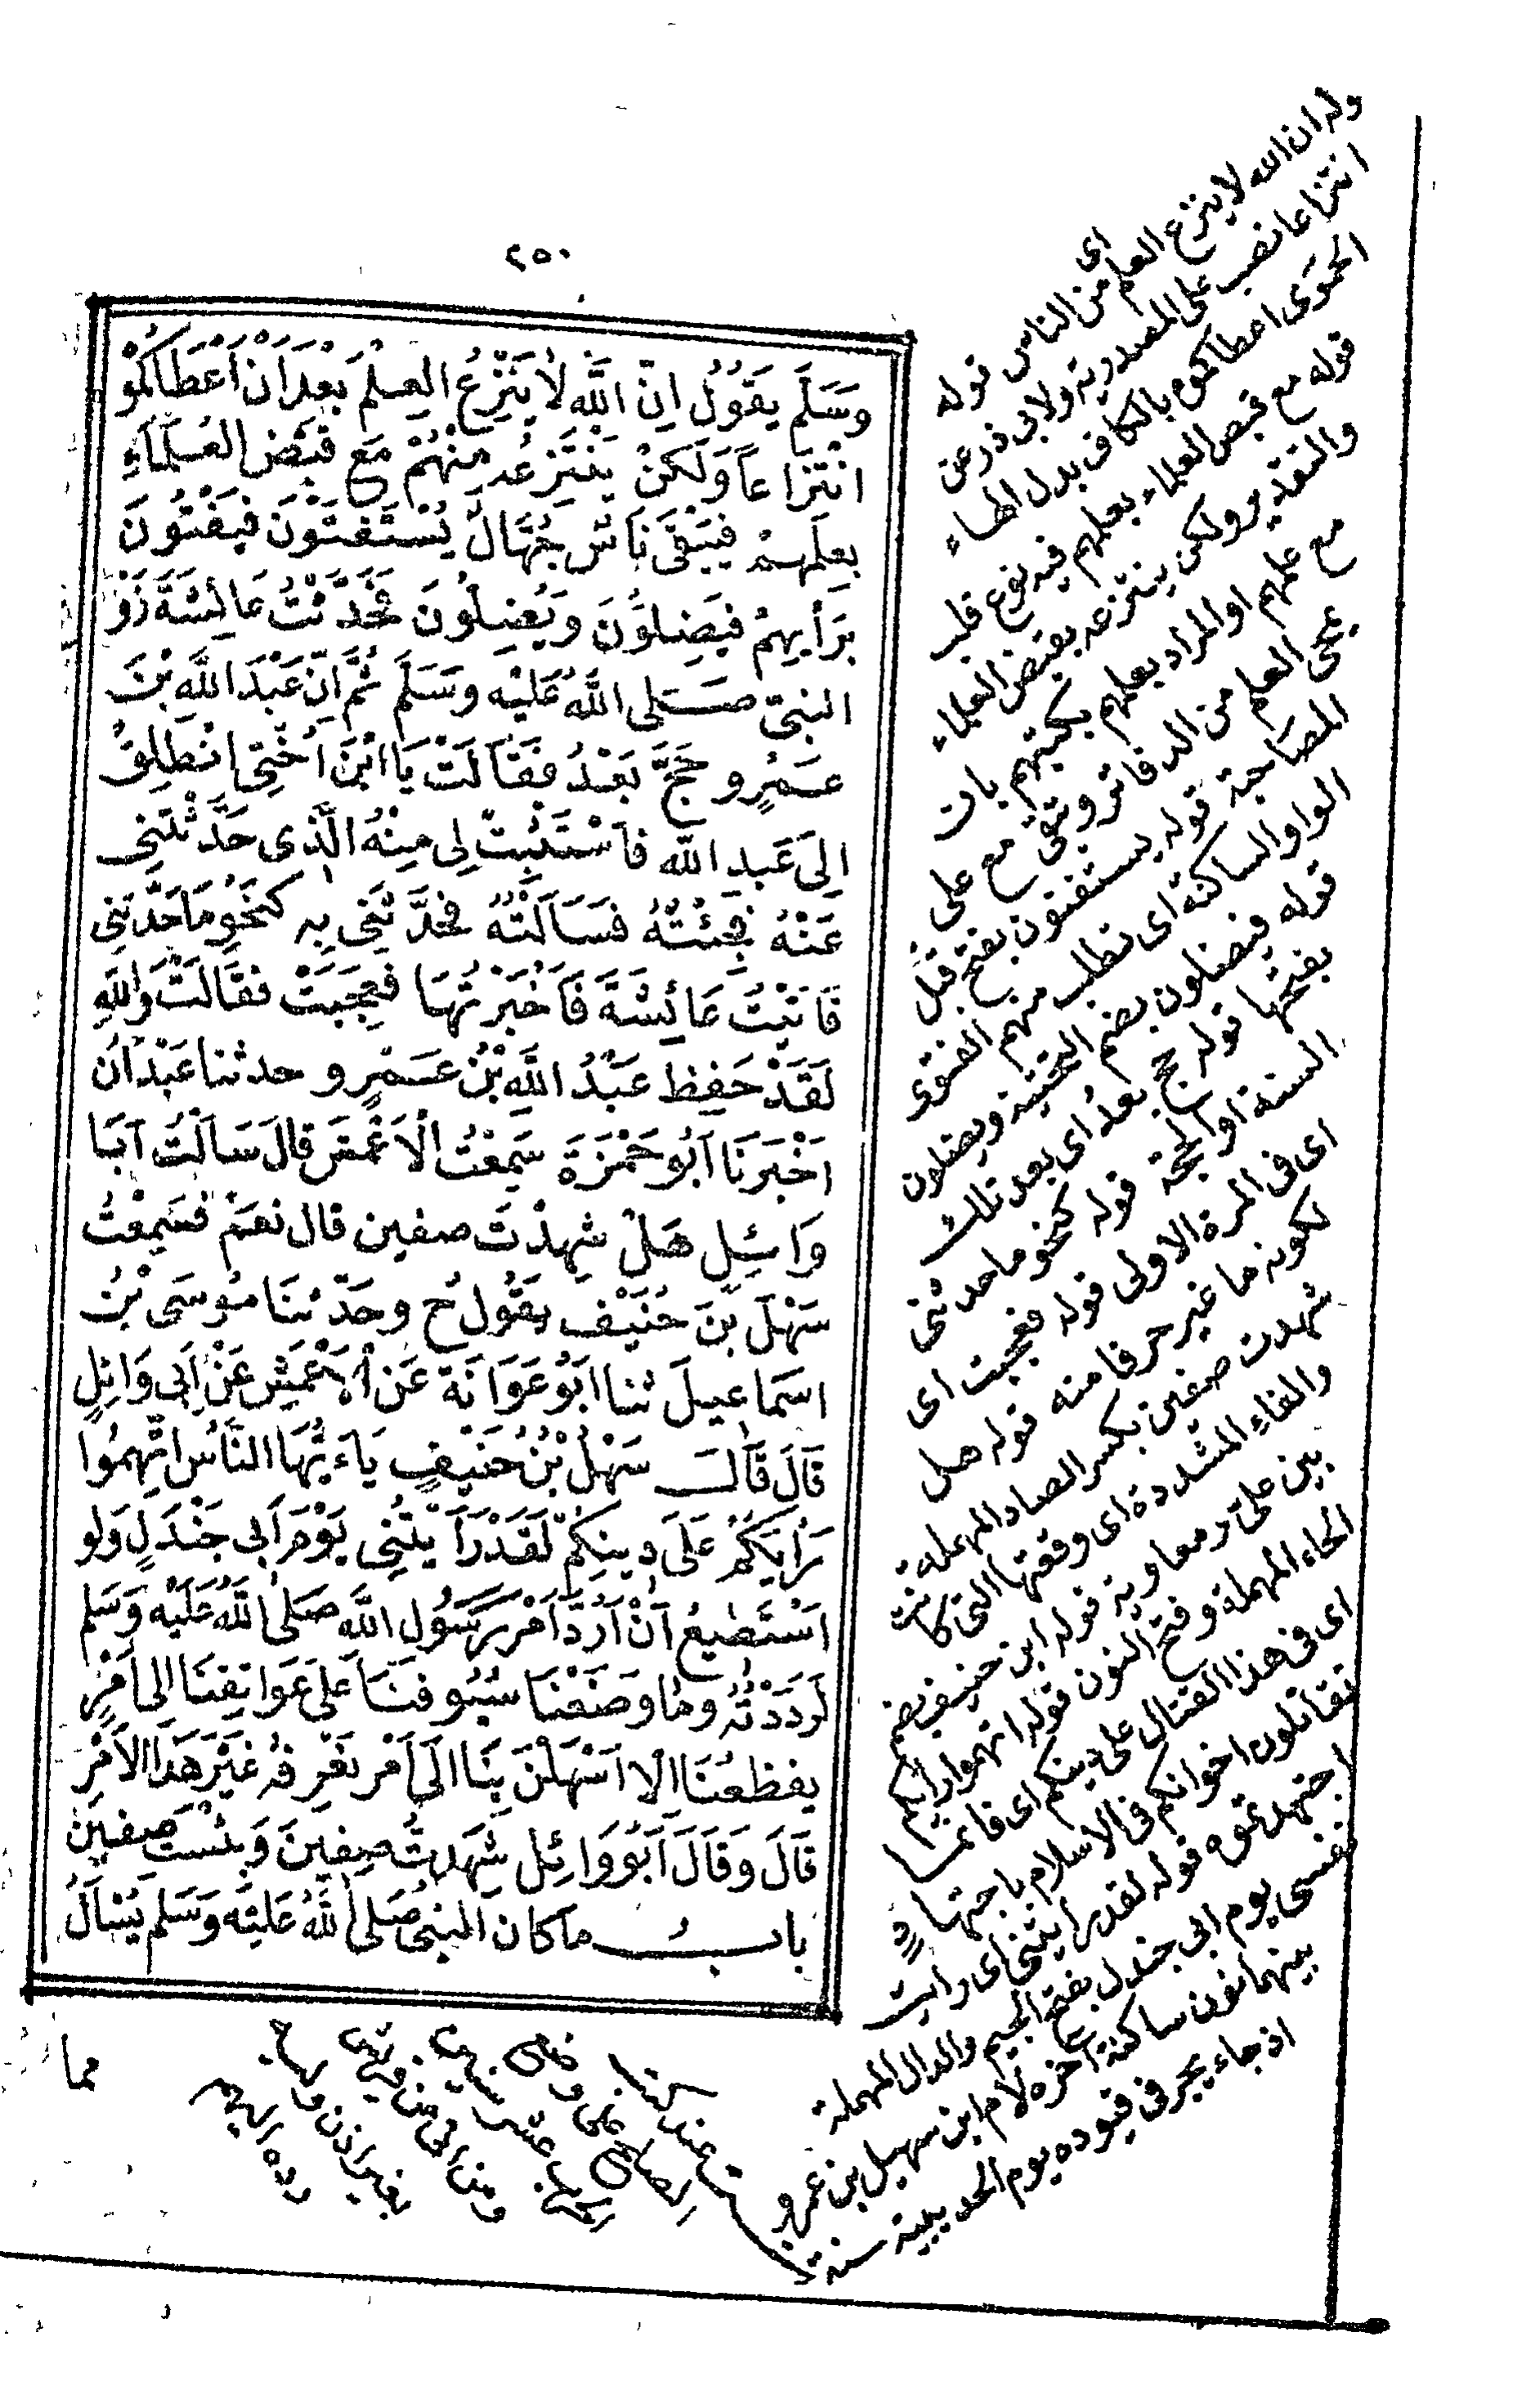 ٢٥٠
وَسَلَّمَ يَقُولُ اِنَّ اللَّهَ لَا يَنْزِعُ العِلْمَ بَعْدَ اَنْ اَعْطَاكُمُوْ
انْتِزَاعاً وَلَكِنْ يَنْتَزِعُهُ مِنْهُمْ مَعَ قَبْضِ العُلَمَاءِ
بِعِلْمِهِمْ فَيَبْقَى نَاسٌ جُهَّالٌ يُسْتَفْتَوْنَ فَيُفْتُونَ
بِرَأْيِهِمْ فَيُضِلُّونَ وَيَضِلُّونَ فَحَدَّثْتُ عَائِشَةَ زَوْ
النبيّ صَلى اللَّهُ عَلَيْه وَسَلَّمَ ثُمَّ اِنَّ عَبْدَ اللَّهِ بْنَ
عَمْرٍو حَجَّ بَعْدُ فَقَالَتْ يَا ابْنَ اُخْتِي انْطَلِقْ
اِلَى عَبْدِ اللَّه فَاسْتَثْبِتْ لِي مِنْهُ الَّذِي حَدَّثْتَنِي
عَنْهُ فَجِئْتُهُ فَسَاَلْتُهُ فَحَدَّثَنِي بِهِ كَنَحْوِ مَا حَدَّثَنِي
فَاَتَيْتُ عَائِشَةَ فَاَخْبَرْتُهَا فَعَجِبَتْ فَقَالَتْ وَاللَّهِ
لَقَدْ حَفِظَ عَبْدُ اللَّهِ بْنُ عَمْرٍو حدثنا عَبْدَانُ
اَخْبَرَنَا اَبُو حَمْزَةَ سَمِعْتُ الْاَعْمَشَ قالَ سَاَلْتُ اَبَا
وَائِلٍ هَلْ شَهِدْتَ صفين قال نعَمْ فَسَمِعْتُ
سَهْلَ بْنَ حُنَيْفٍ يَقُولُ ح وحَدّثنَا مُوسَى بْنُ
اسمَاعِيلَ ثنا ابَوُ عَوَانَةَ عَنِ الْاَعْمَشِ عَنْ اَبِي وَائِلٍ
قَالَ قَالَ سَهْلُ بْنُ حُنَيْفٍ يَاءَيُّهَا النَّاسُ اتَّهِمُوا
رَأْيَكُمْ عَلَى دِينِكُمْ لَقَدْ رَاَيْتُنِي يَوْمَ اَبِي جَنْدَلٍ وَلَو
اَسْتَطِيعُ اَنْ اَرُدَّ اَمْرَ رَسُولِ اللَّه صَلَى اللَّهُ عَلَيْه وَسَلم
لَرَدَدْتُهُ وَمَا وَضَعْنَا سُيُوفَنَا عَلَى عَوَاتِقِنَا اِلَى اَمْرٍ
يفظعُنَا اِلَّا اَسْهَلْنَ بِنَا الَى اَمْرٍ نَعْرِفُهُ غَيْرَ هَذَا الاَمْرِ
قَالَ وَقَالَ اَبُو وَائِل شَهِدتُ صِفِينَ وَبِئْسَت صِفين
بابُ ما كان النبي صَلى اللَّهُ عَلَيْه وَسَلم يُسْاَلُ
مما
وله ان الله لا ينزع العلم من الناس قوله
اى
انتزاعا نصب على المصدرية ولابى ذر عن
الحموى اعطاكموه بالكاف بدل الهاء
قوله مع قبض العلماء بعلمهم فيه نوع قلب
والتقدير ولكن ينتزعه بقبض العلماء
مع علمهم او المراد بعلمهم بكتبهم بان
يمحى العلم من الدفاتر وتبقى مع على
المصاحبة قوله يستفتون بفتح قبل
الواو الساكنة اى تطلب منهم الفتوى
قوله فيضلون بضم التحتية ويضلون
بفتحها قوله حج بعد اى بعد تلك
السنة او الحجة قوله كنحو ما حدثنى
اى فى المرة الاولى قوله فعجبت اى
لكونه ما غير حرفا منه قوله هل
شهدت صفين بكسر الصاد المهملة
والفاء المشددة اى وقعتها التى كانت
بين على ومعاوية قوله ابن حنيف بضم
الحاء المهملة وفتح النون قوله اتهموا رايكم
اى فى هذا القتال على دينكم اى فانما
تقاتلون اخوانكم فى الاسلام باجتهاد
اجتهدتموه قوله لقد رايتنى اى رايت
نفسى يوم ابى جندل بفتح الجيم والدال المهملة
بينهما نون ساكنة اخره لام ابن سهيل بن عمرو
اذ جاء يحجر فى قيوده يوم الحديبية سنة